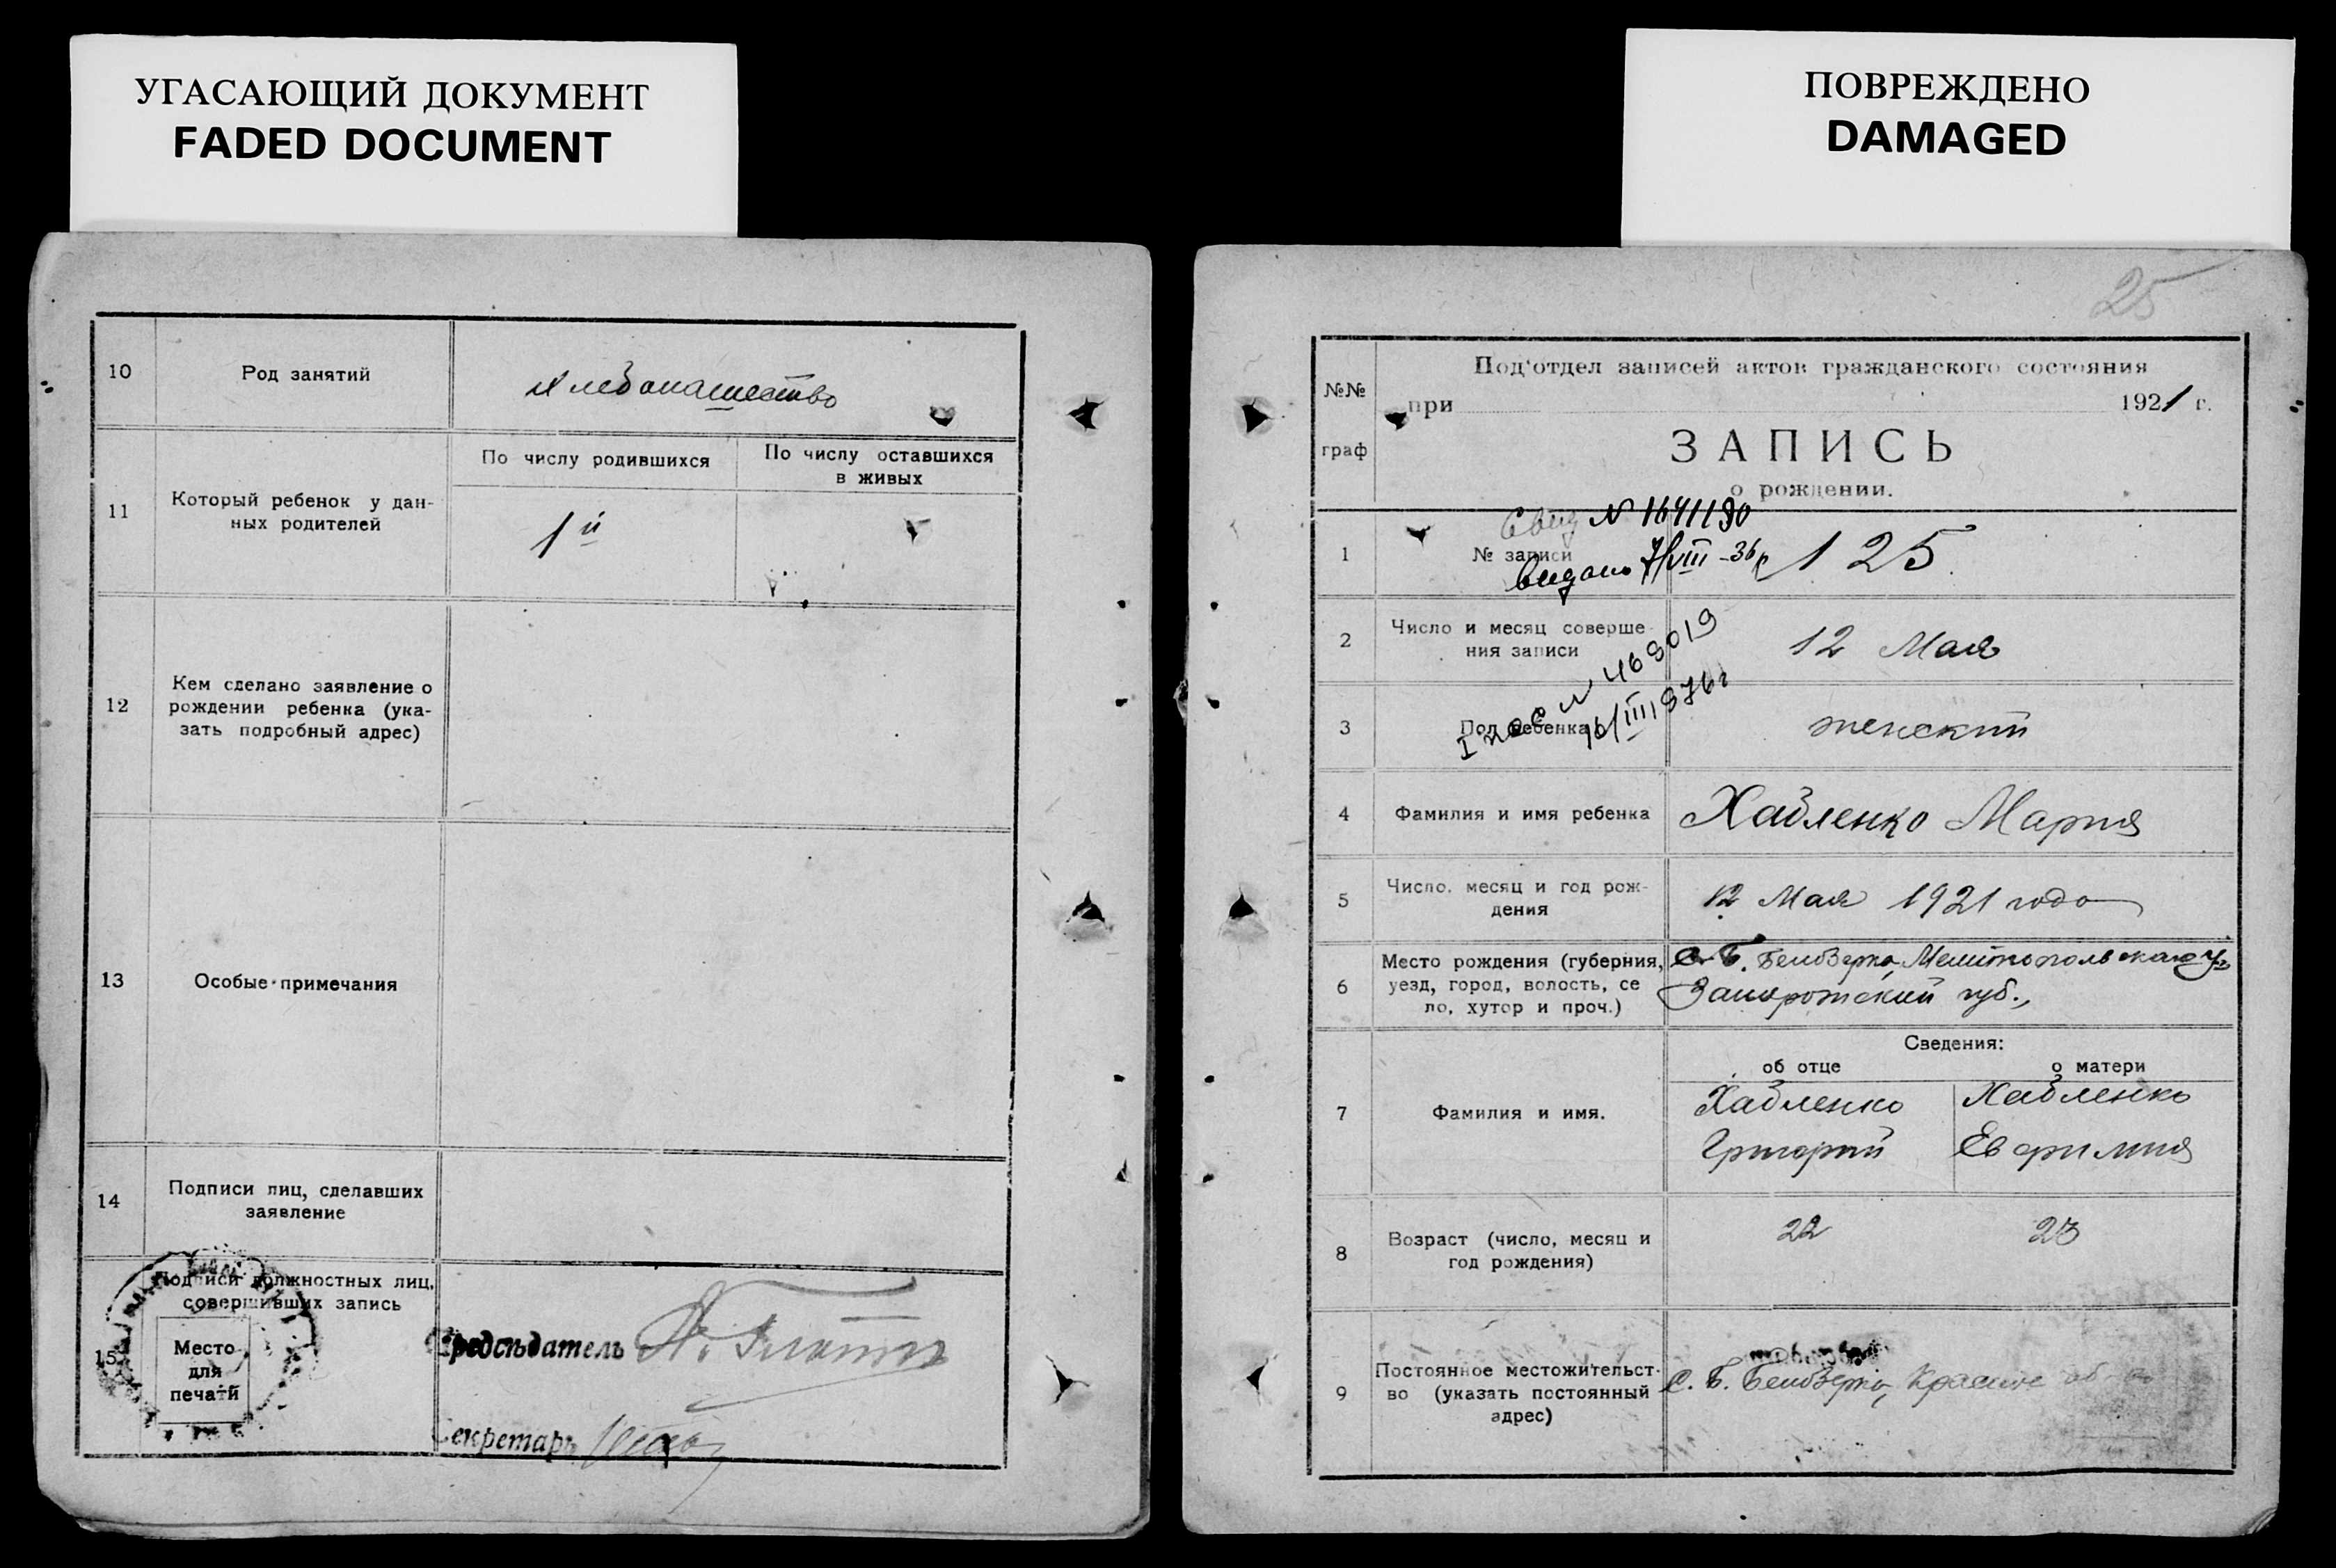 УГАСАЮЩИЙ ДОКУМЕНТ
FADED DOCUMENT
10
Род занятий
Хлебопашество
11
Который ребенок у дан-
ных родителей
По числу родившихся
По числу оставшихся
в живых
1й
12
Кем сделано заявление о
рождении ребенка (ука-
зать подробный адрес)
13
Особые примечания
14
Подписи лиц, сделавших
заявление
15
Подписи должностных лиц,
совершивших запись
Место
для
печати
Предсѣдатель
Секретарь
ПОВРЕЖДЕНО
DAMAGED
25
№№
граф
Под'отдел записей актов гражданского состояния
при 1921 г.
ЗАПИСЬ
о рождении.
Свид N 1641190
1
№ записи
125
видано 7/VIII-36р
2
Число и месяц соверше-
ния записи
12 Мая
I пас N 469019
16/III 1976г
3
Пол ребенка
женский
4
Фамилия и имя ребенка
Хабленко Мария
5
Число, месяц и год рож-
дения
12 Мая 1921 года
6
Место рождения (губерния,
уезд, город, волость, се
ло, хутор и проч.)
с. Б. Белозерка, Мелитопольскаго у.
Запорожский губ.,
Сведения:
об отце
о матери
7
Фамилия и имя.
Хабленко
Григорий
Хабленко
Евфимия
8
Возраст (число, месяц и
год рождения)
22
23
9
Постоянное местожительст-
во (указать постоянный
адрес)
с. Б. Белозерка,